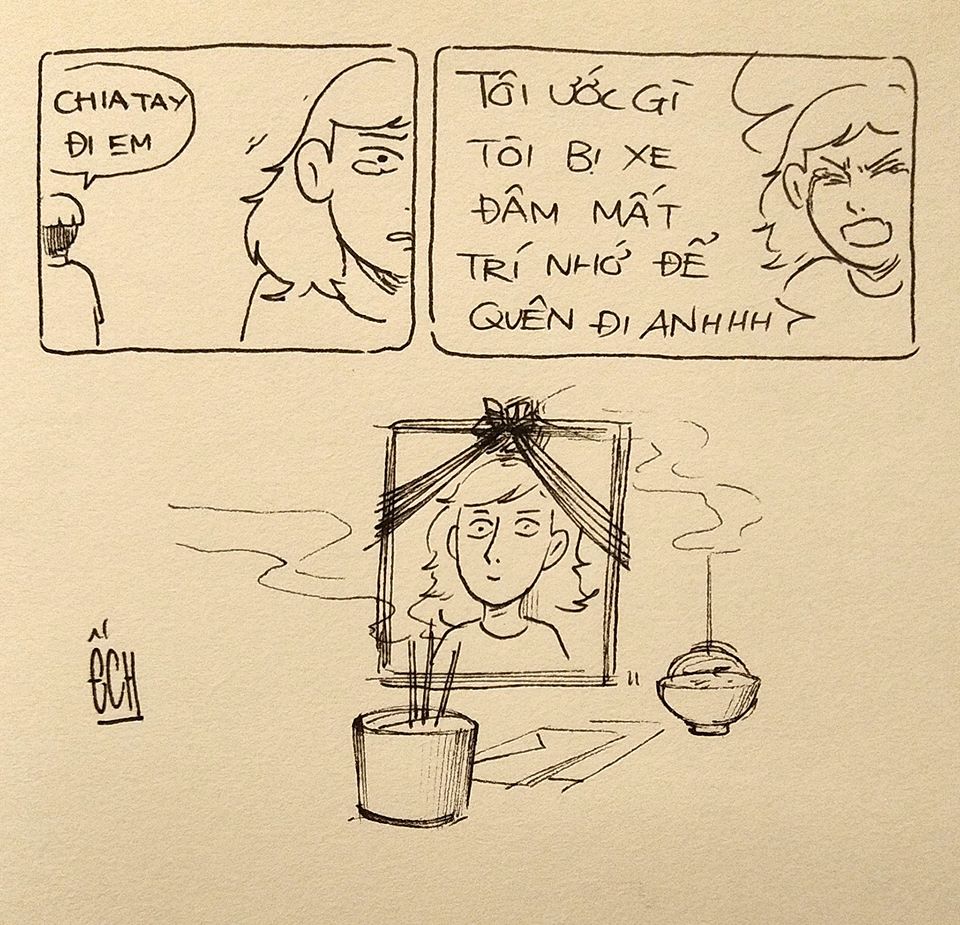 CHIA TAY
ĐI EM
TÔI ƯỚC GÌ
TÔI BỊ XE
ĐÂM MẤT
TRÍ NHỚ ĐỂ
QUÊN ĐI ANHHH
ẾCH